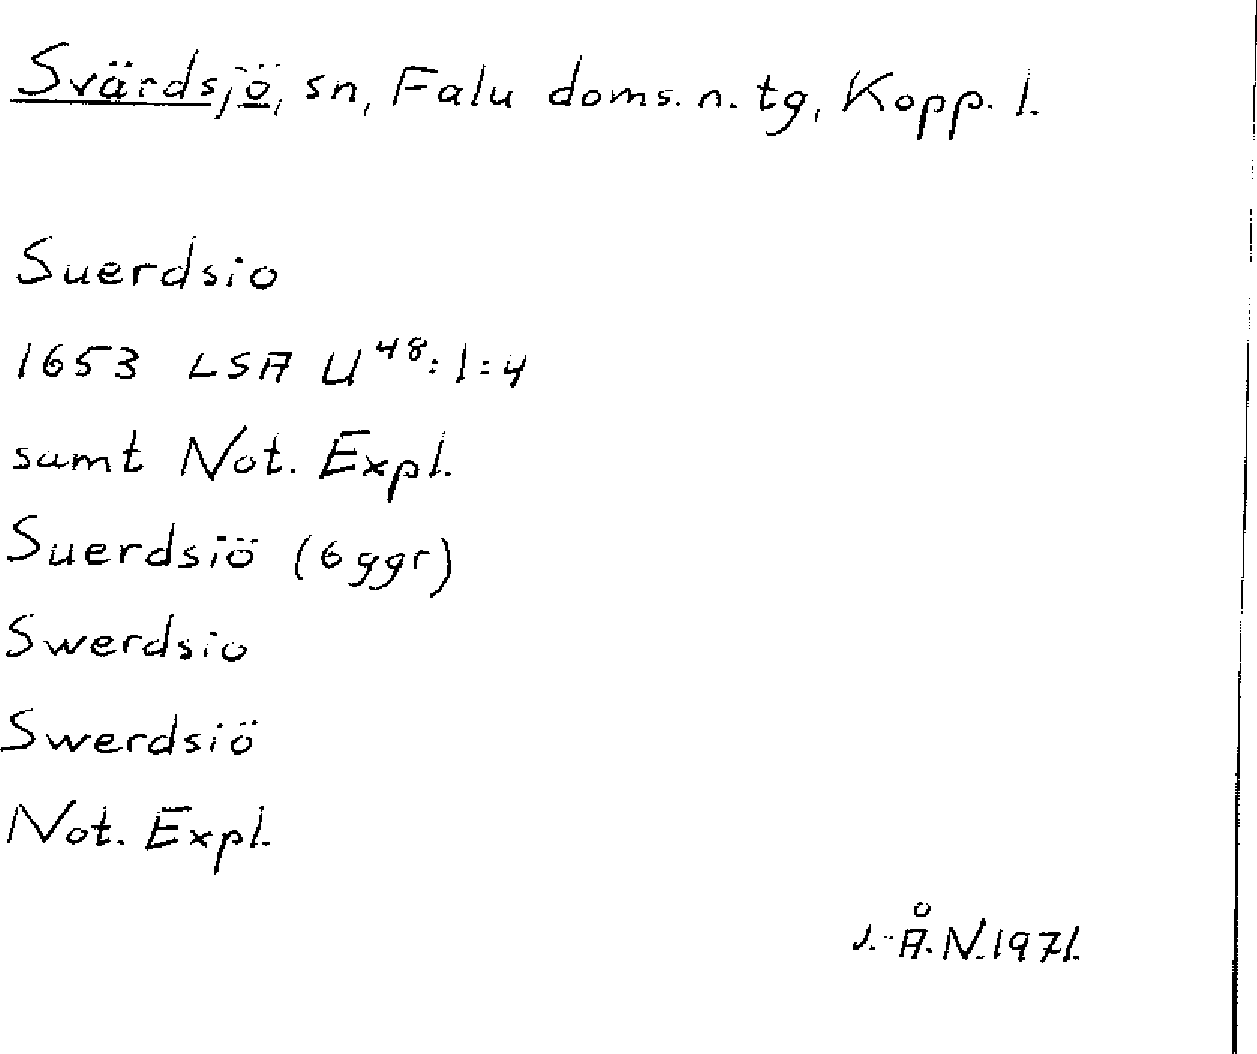 Svärdsjö, sn, Falu doms. n. tg, Kopp. l.
Suerdsio
1653 LSA U48:1:4
samt Not. Expl.
Suerdsiö (6 ggr)
Swerdsio
Swerdsiö
Not. Expl.
J.-Å.N.1971.